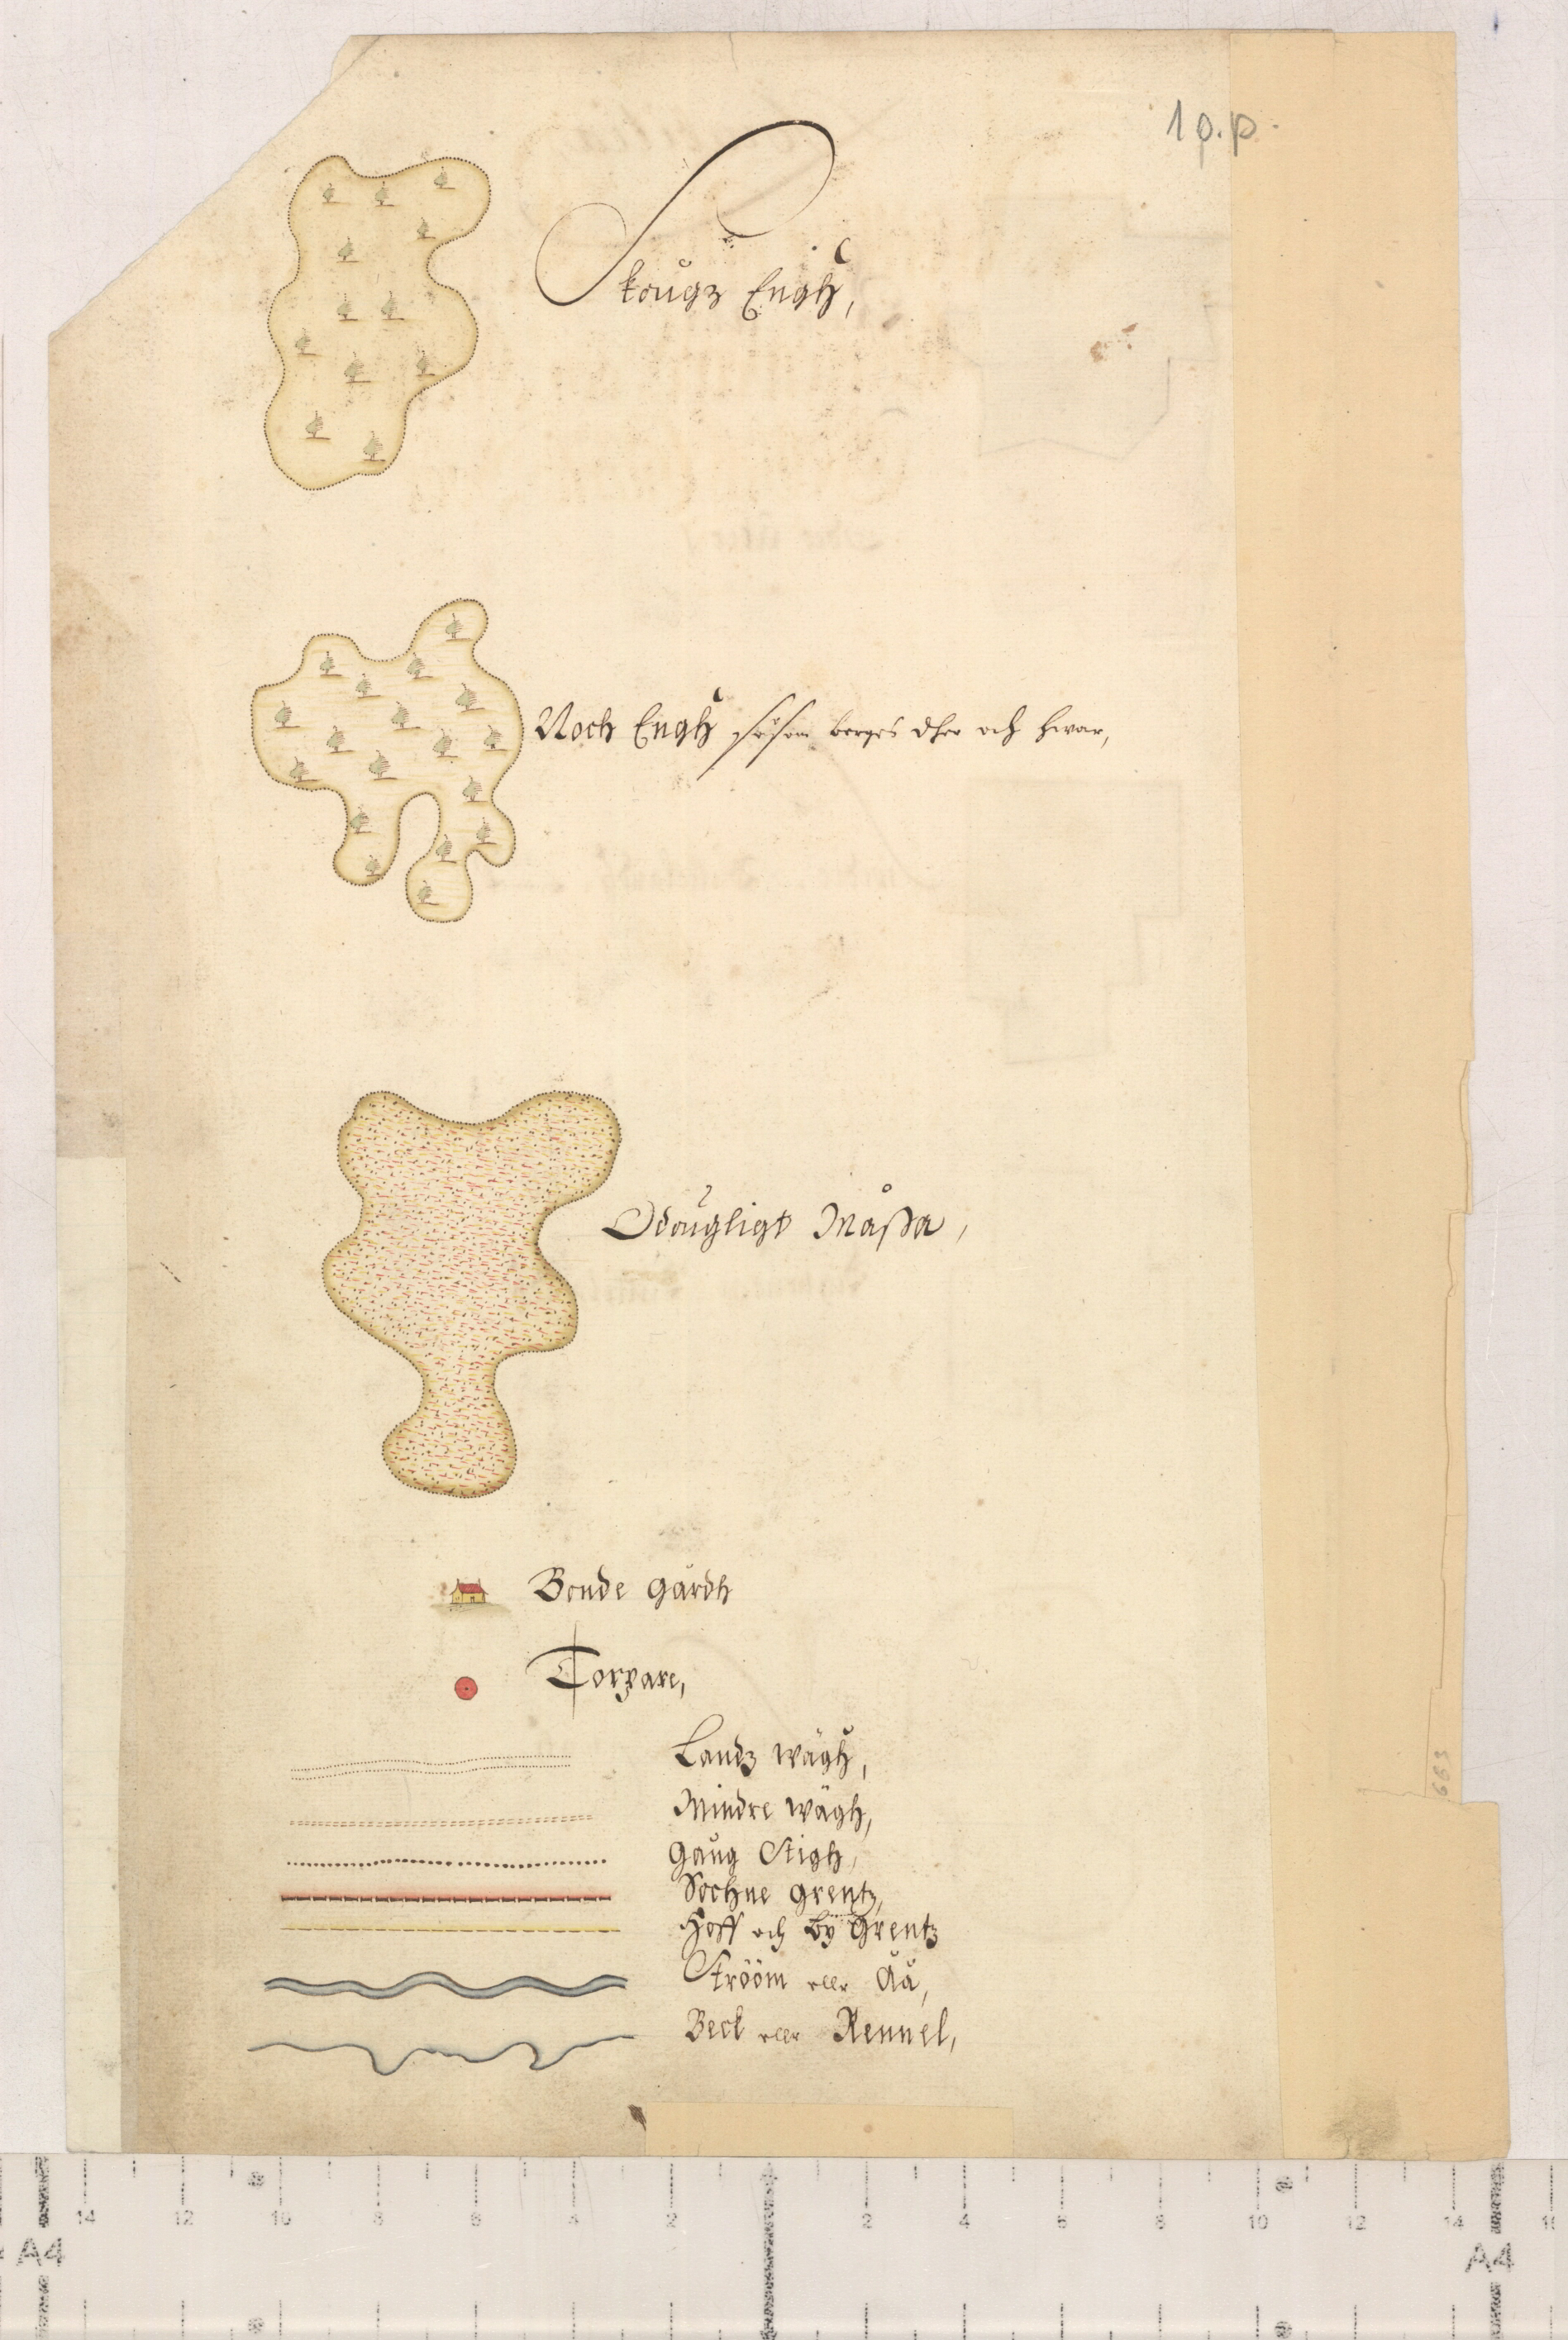 1 p.p.
Skougz Engh,
Noch Engh såsom berges dher och hwar,
Odougligt Måssa,
Bonde gårdh
Torpare,
Landz wägh,
Mindre wägh,
Gång Stigh,
Sochne grentz,
Hoff och by Grentz
Strööm eller Åå,
Beck eller Rennel,
663
14 12 10 8 6 4 2 2 4 6 8 10 12 14
A4 A4